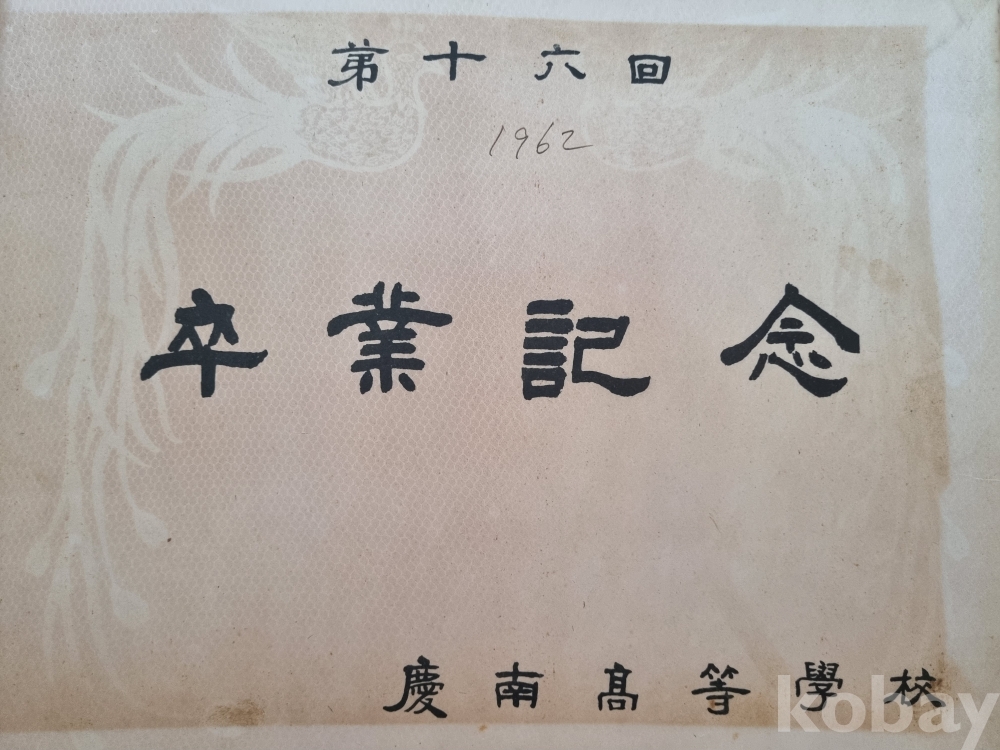 第十六回
1962
卒業記念
慶南高等學校
kobay